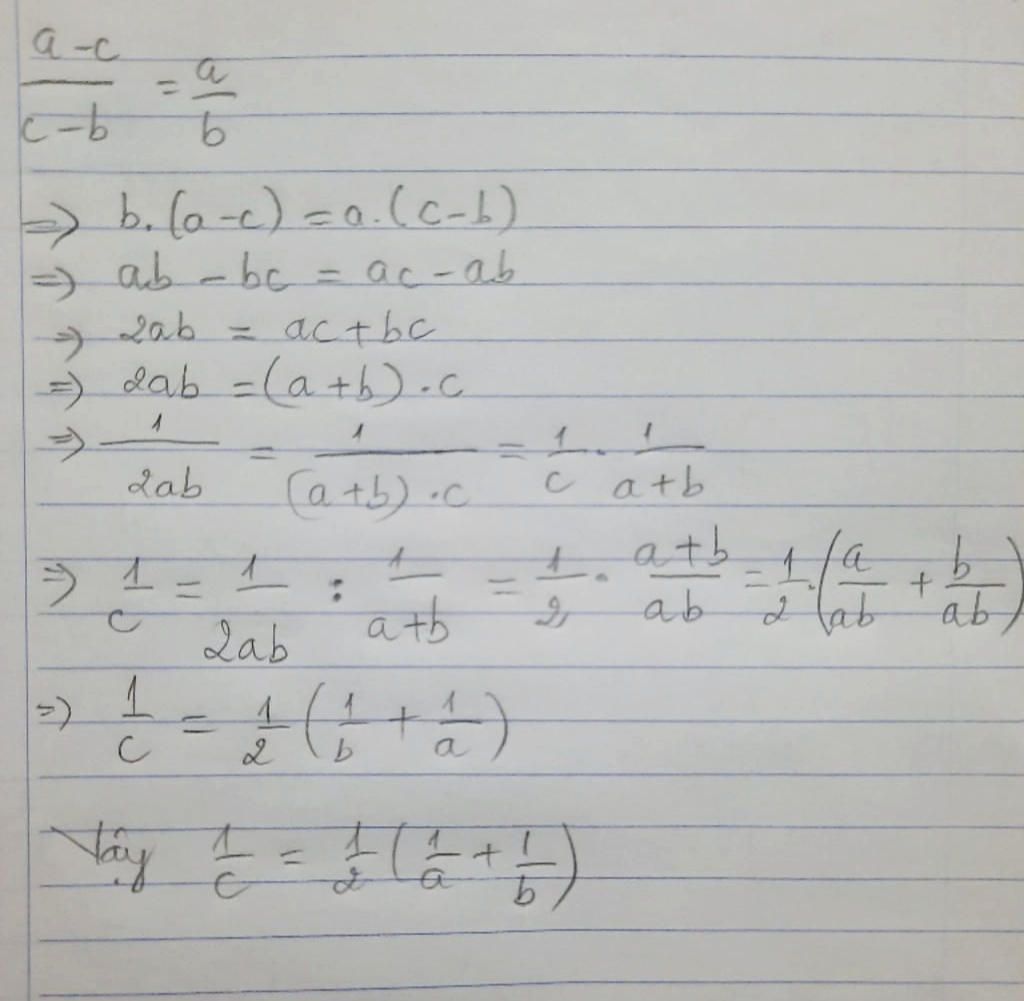 (a-c)/(c-b) = a/b
=> b.(a-c) = a.(c-b)
=> ab - bc = ac - ab
=> 2ab = ac + bc
=> 2ab = (a+b).c
=> 1/(2ab) = 1/((a+b).c) = 1/c . 1/(a+b)
=> 1/c = 1/(2ab) : 1/(a+b) = 1/2 . (a+b)/(ab) = 1/2 . (a/(ab) + b/(ab))
=> 1/c = 1/2 (1/b + 1/a)
Vậy 1/c = 1/2 (1/a + 1/b)